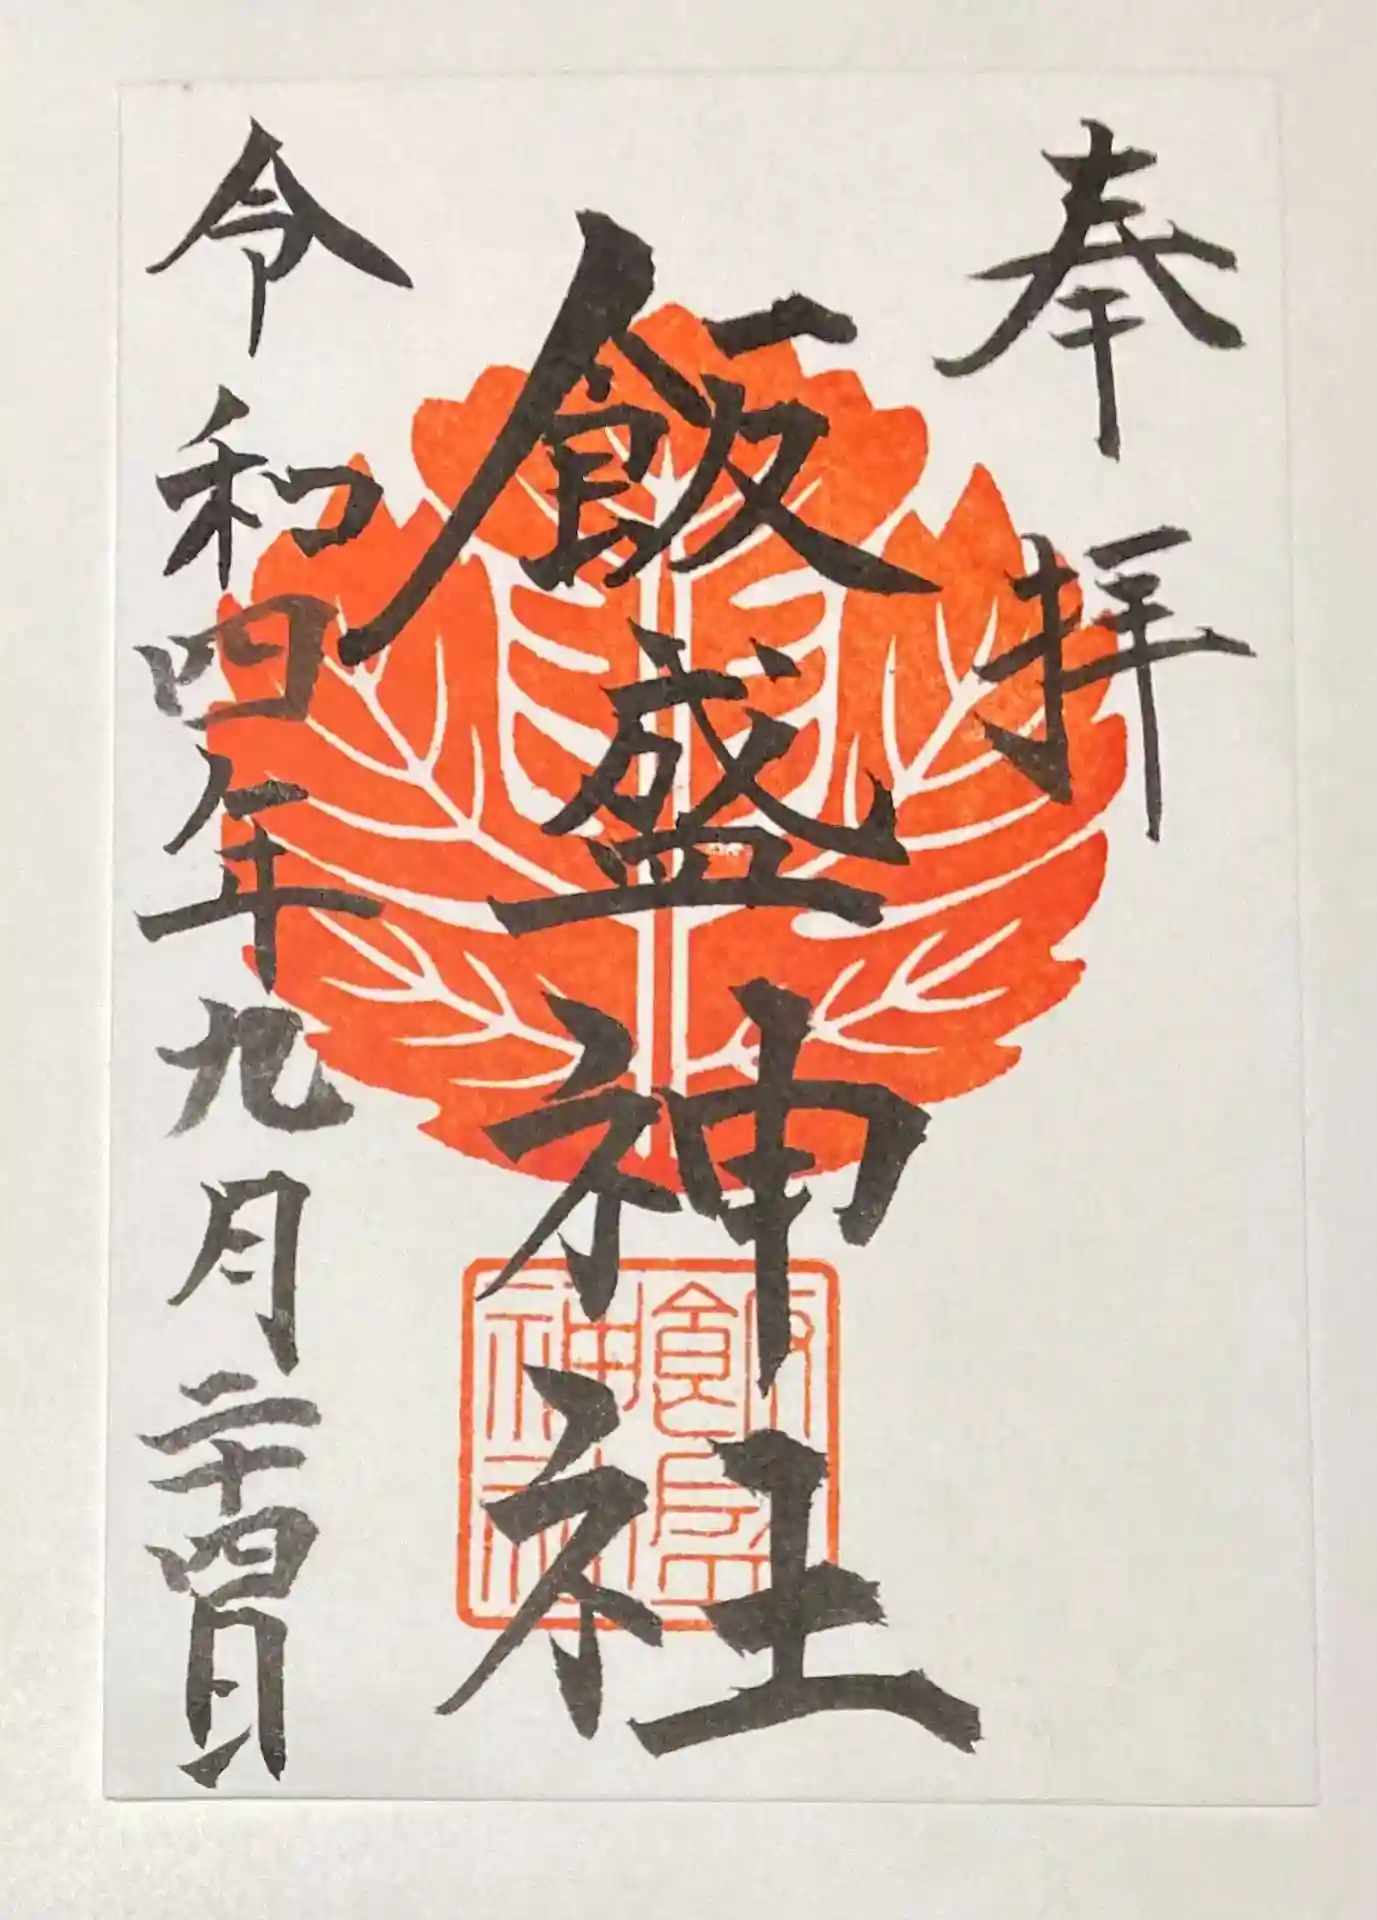 奉拝
飯盛神社
飯盛
神社
令和四年九月二十四日